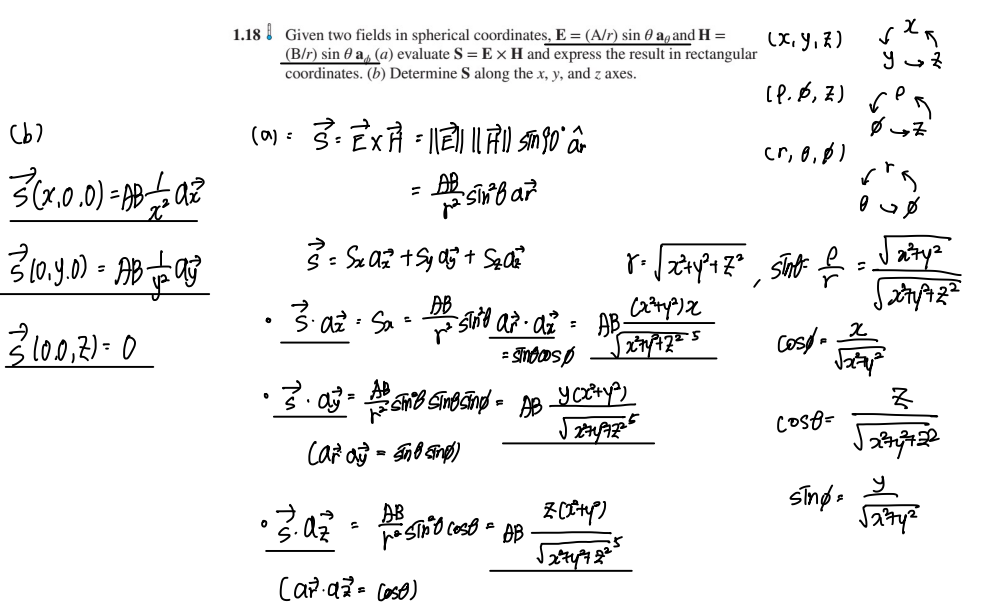 1.18 Given two fields in spherical coordinates, E = (A/r) sin θ a_θ and H =
(B/r) sin θ a_ϕ (a) evaluate S = E × H and express the result in rectangular
coordinates. (b) Determine S along the x, y, and z axes.
(x, y, z) x y → z
(ρ, ϕ, z) ρ ϕ → z
(r, θ, ϕ) r θ → ϕ
(a) = S⃗ = E⃗ × H⃗ = ||E⃗|| ||H⃗|| sin90° âr
= AB/r² sin²θ ar⃗
S⃗ = Sx ax⃗ + Sy ay⃗ + Sz az⃗
r = √(x²+y²+z²) , sinθ = ρ/r = √(x²+y²) / √(x²+y²+z²)
• S⃗ · ax⃗ = Sx = AB/r² sin²θ ar⃗ · ax⃗ = AB (x²+y²)x / √(x²+y²+z²)⁵
= sinθcosϕ
cosϕ = x / √(x²+y²)
• S⃗ · ay⃗ = AB/r² sin²θ sinθ sinϕ = AB y(x²+y²) / √(x²+y²+z²)⁵
(ar⃗ ay⃗ = sinθ sinϕ)
cosθ = z / √(x²+y²+z²)
• S⃗ · az⃗ = AB/r² sin²θ cosθ = AB z(x²+y²) / √(x²+y²+z²)⁵
(ar⃗ · az⃗ = cosθ)
sinϕ = y / √(x²+y²)
(b)
S⃗(x,0,0) = AB 1/x² ax⃗
S⃗(0,y,0) = AB 1/y² ay⃗
S⃗(0,0,z) = 0